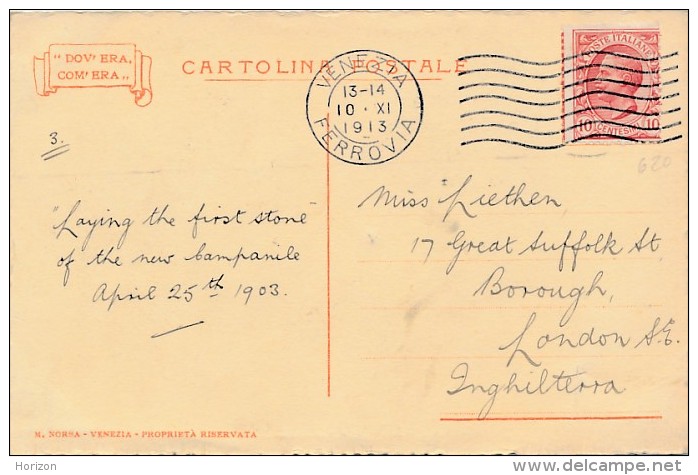 " DOV' ERA,
COM' ERA „
CARTOLINA POSTALE
VENEZIA
13-14
10 · XI
1913
FERROVIA
POSTE ITALIANE
10 CENTESIMI 10
620
3.
"Laying the first stone"
of the new Campanile
April 25th 1903.
Miss Liethen
17 Great Suffolk St.
Borough,
London S.E.
Inghilterra
N. NORSA - VENEZIA - PROPRIETÀ RISERVATA
Horizon
www.delcampe.net